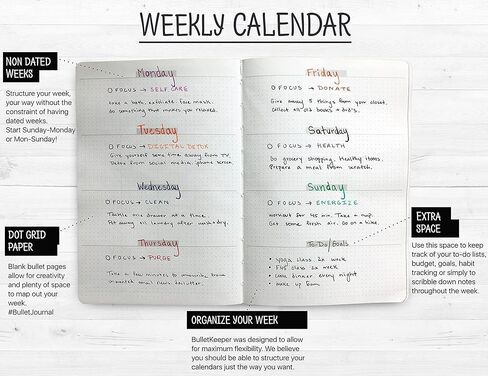 WEEKLY CALENDAR
NON DATED
WEEKS
Structure your week,
your way without the
constraint of having
dated weeks.
Start Sunday-Monday
or Mon-Sunday!
DOT GRID
PAPER
Blank bullet pages
allow for creativity
and plenty of space
to map out your
week.
#BulletJournal
Monday
FOCUS → SELF CARE
take a bath. exfoliate. face mask.
do something that makes you relaxed.
Tuesday
FOCUS → DIGITAL DETOX
Give yourself some time away from TV.
Detox from social media, phone screen
Wednesday
FOCUS → CLEAN
Tackle one drawer at a time.
Put away all laundry after wash + dry.
Thursday
FOCUS → PURGE
Take a few minutes to unsubscribe from
unwanted email
Friday
FOCUS → DONATE
Give away 5 things from your closet.
collect all old books + dvd's.
Saturday
FOCUS → HEALTH
Do grocery shopping. Healthy items.
Prepare a meal from scratch.
Sunday
FOCUS → ENERGIZE
workout for 45 min. Take a nap.
Get some fresh air. Go on a hike.
To-Do/Goals
• yoga class 2x week
• class 2x week
• cook dinner every night
• wake up 6am
EXTRA
SPACE
Use this space to keep
track of your to-do lists,
budget, goals, habit
tracking or simply to
scribble down notes
throughout the week.
ORGANIZE YOUR WEEK
BulletKeeper was designed to allow
for maximum flexibility. We believe
you should be able to structure your
calendars just the way you want.